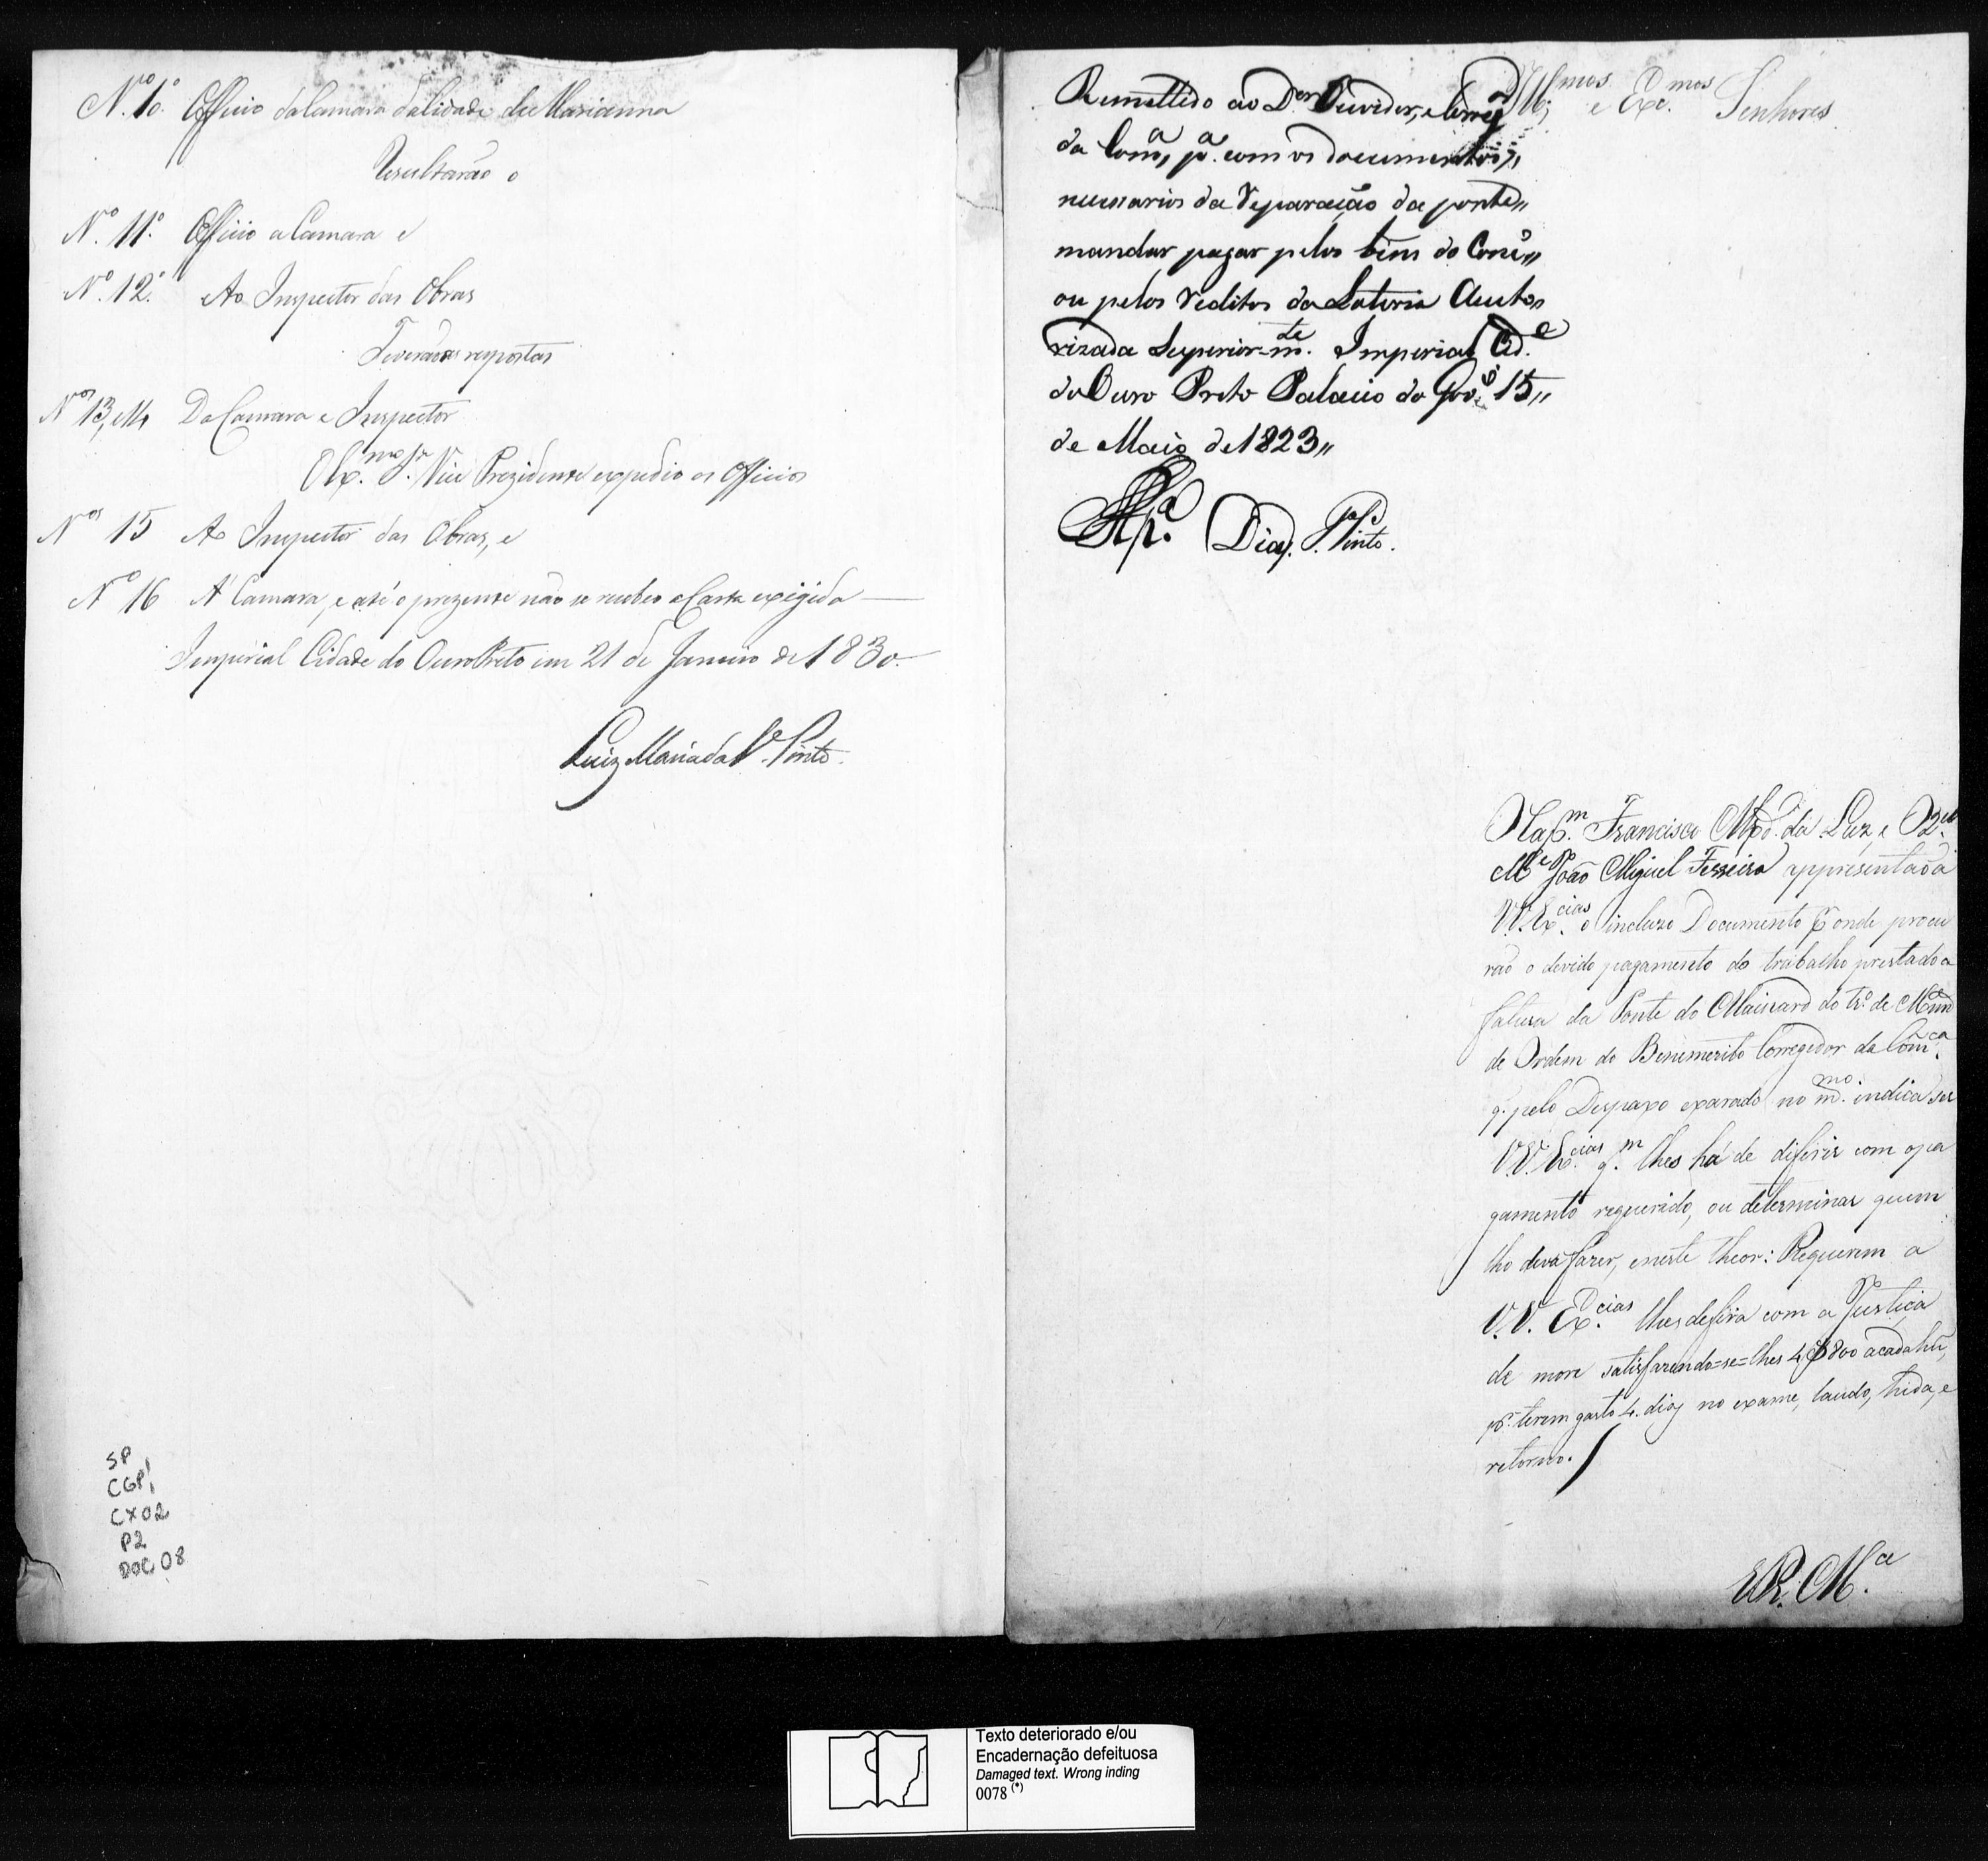 N.º 10.º Officio da Camara da Cidade de Marianna
Resultarão o
N.º 11.º Officio a Camara e
N.º 12.º Ao Inspector das Obras
Tiverão as respostas
N.ºs 13, e 14 Da Camara e Inspector
O Ex.mo Sr. Vice Prezidente expedio os Officios
N.os 15 Ao Inspector das Obras, e
N.º 16 A' Camara, e até o prezente não se recebeo a Carta exigida —
Imperial Cidade do Ouro Preto em 21 de Janeiro de 1830.
Luiz Maria da S.ª Pinto.
SP
CGP1
CX02
P2
DOC 08
Remettido ao D.or Ouvidor, e Correg.or
da Com.ca, p.a com os documentos,,
necessarios da Reparação da ponte,,
mandar pagar pelos bens do Cons.º,,
ou pelos Reditos da Loteria Auto,,
rizada Superior=m.te Imperial Cid.e
do Ouro Preto Palacio do Gov.º 15,,
de Maio de 1823,,
Dias. Pinto.
Ill.mos e Exc.mos Senhores
O Cap.m Francisco Mxd.º da Luz, e O
M.e João Miguel Ferreira appresentão a
V.V. Ex.cias o incluzo Documento p.r onde procu
rão o devido pagamento do trabalho prestado a
fatura da Ponte do Mainard do tr.º de
de Ordem do Benemerito Corregedor da Com.ca,
q. pelo Despaxo exarado no m.mo indica ser
V.V. Ex.cias q.m lhes há de diferir com o pa
gamento requerido, ou determinar quem
lho deva fazer, e neste theor: Requerem a
V.V. Ex.cias lhes defira com a Justiça
de more satisfazendo=se=lhes 4$800 a cada hũ,
p.r terem gasto 4. dias no exame, laudo, hida, e
retorno. /
E.R.M.ce
Texto deteriorado e/ou
Encadernação defeituosa
Damaged text. Wrong inding
0078 (*)